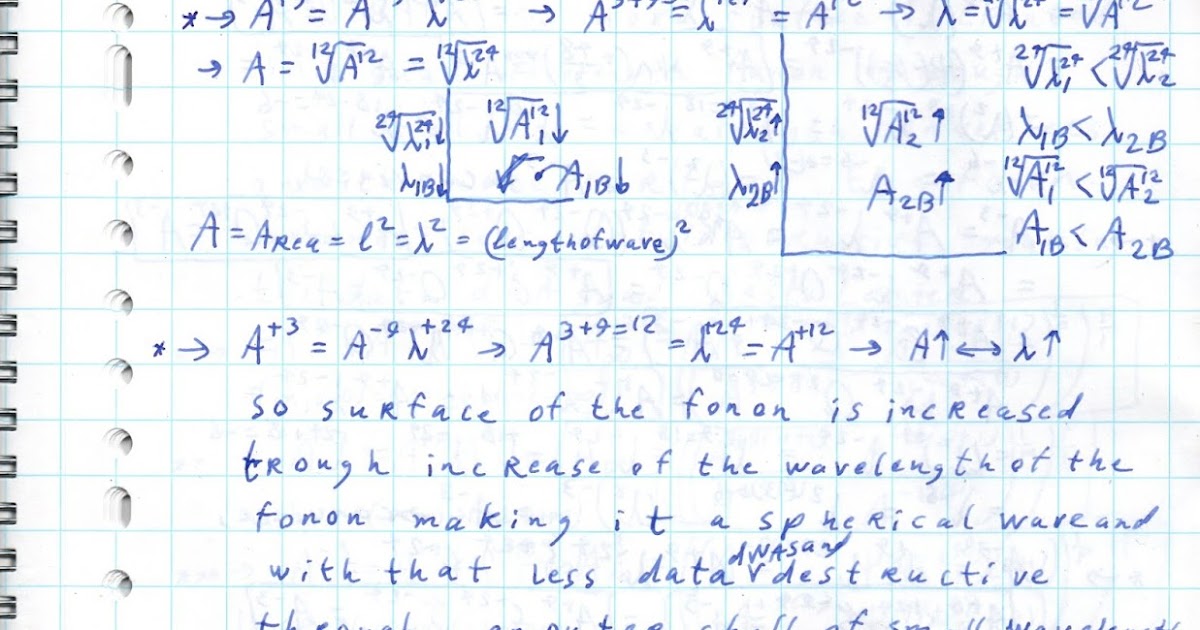 *→ A = A λ → A = λ = A¹² → λ = =
→ A = ¹²√A¹² = ¹²√λ²⁴
²⁴√λ₁²⁴↓ ¹²√A₁¹²↓ ²⁴√λ₂²⁴↑ ¹²√A₂¹²↑ ²⁴√λ₁²⁴ < ²⁴√λ₂²⁴
λ1B↓ A1B↓ λ2B↑ A2B↑ λ1B < λ2B
¹²√A₁¹² < ¹²√A₂¹²
A = AREA = l² = λ² = (lengthofwave)² A1B < A2B
*→ A⁺³ = A⁻⁹ λ⁺²⁴ → A³⁺⁹⁼¹² = λ⁺²⁴ = A⁺¹² → A↑ ↔ λ↑
so surface of the fonon is increased
trough increase of the wavelength of the
fonon making it a spherical wave and
with that less data dWASand destructive